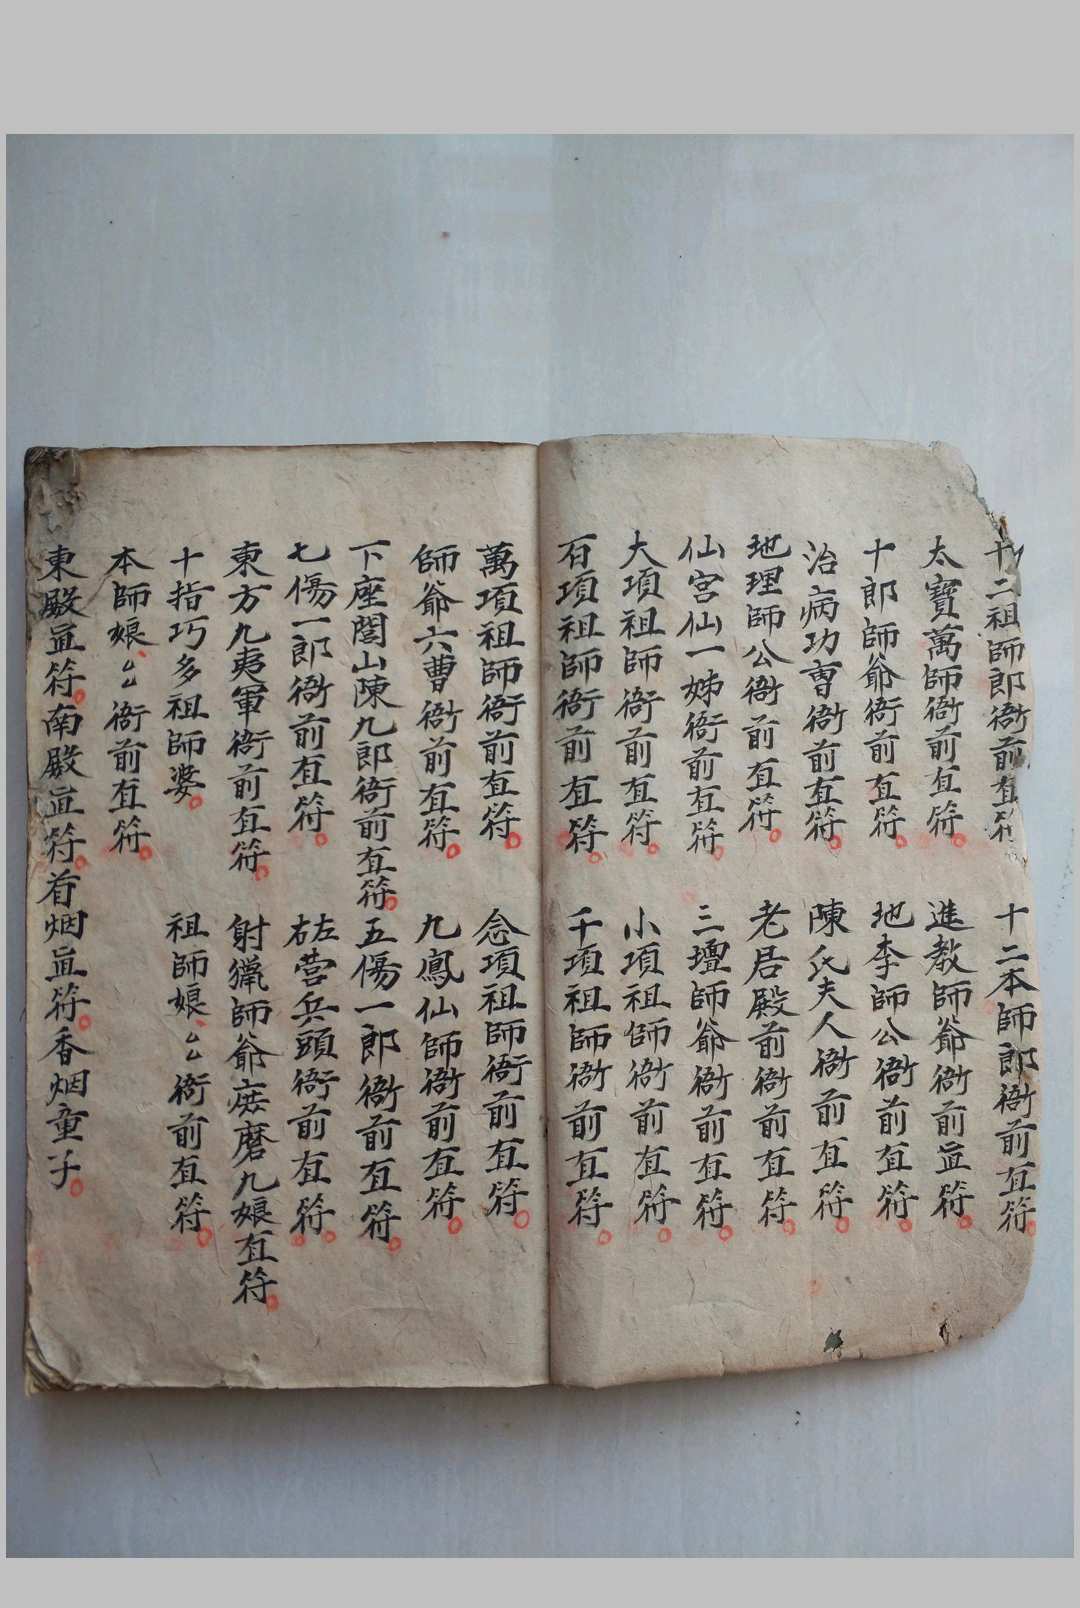 十二祖師郎衙前直符 十二本師郎衙前直符
太寶萬師衙前直符 進教師爺衙前直符
十郎師爺衙前直符 地李師公衙前直符
治病功曹衙前直符 陳氏夫人衙前直符
地理師公衙前直符 老居殿前衙前直符
仙宮仙一姊衙前直符 三壇師爺衙前直符
大項祖師衙前直符 小項祖師衙前直符
百項祖師衙前直符 千項祖師衙前直符
萬項祖師衙前直符 念項祖師衙前直符
師爺六曹衙前直符 九鳳仙師衙前直符
下座閭山陳九郎衙前直符 五傷一郎衙前直符
七傷一郎衙前直符 左右营兵頭衙前直符
東方九夷軍衙前直符 射獵師爺磨九娘直符
十指巧多祖師婆 祖師娘衙前直符
本師娘衙前直符
東殿直符南殿直符首烟直符香烟童子